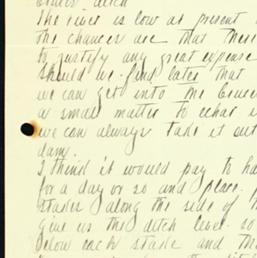 ditch
The river is low at present
the chances are that
to justify any great expense
should we find later that
we can get into the
a small matter to
we can always take it out
dam.
I think it would pay to ha
for a day or so and place
stakes along the side of
give us the ditch level so
below each stake and